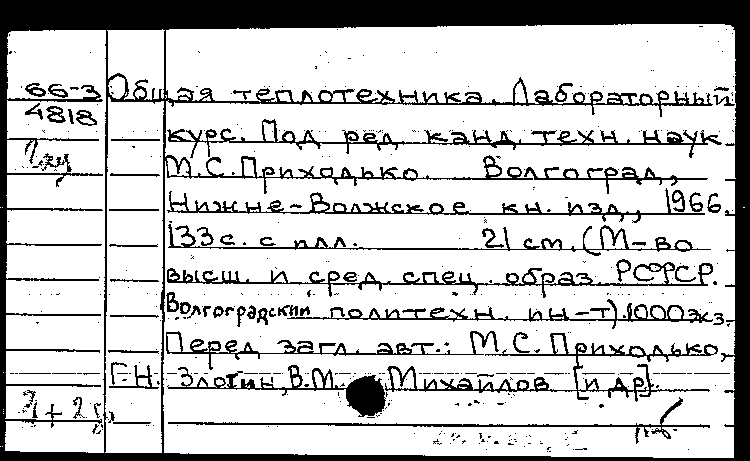 66-3 Общая теплотехника. Лабораторный
4818
курс. Под ред. канд. техн. наук
М.С.Приходько. Волгоград,
Нижне-Волжское кн. изд., 1966.
133с. с илл. 21 см. (М-во
высш. и сред. спец. образ. РСФСР.
Волгоградский политехн. ин-т). 1000 экз.
Перед загл. авт.: М.С.Приходько,
Г.Н. Злотин, В.М. Михайлов [и др].